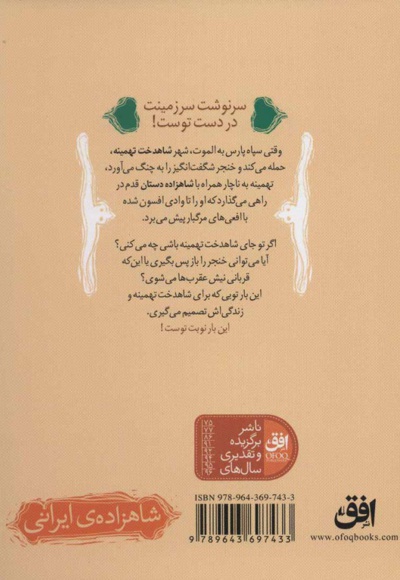 سرنوشت سرزمینت
در دست توست!
وقتی سپاه پارس به الموت، شهر شاهدخت تهمینه،
حمله می‌کند و خنجر شگفت‌انگیز را به چنگ می‌آورد،
تهمینه به ناچار همراه با شاهزاده دستان قدم در
راهی می‌گذارد که او را تا وادی افسون شده
با افعی‌های مرگبار پیش می‌برد.
اگر تو جای شاهدخت تهمینه باشی چه می‌کنی؟
آیا می‌توانی خنجر را باز پس بگیری یا این‌که
قربانی نیش عقرب‌ها می‌شوی؟
این بار تویی که برای شاهدخت تهمینه و
زندگی‌اش تصمیم می‌گیری.
این بار نوبت توست!
ناشر
برگزیده
و تقدیری
سال‌های
افق
OFOQ
ISBN 978-964-369-743-3
9 789643 697433
شاهزاده‌ی ایرانی
نشر افق
www.ofoqbooks.com